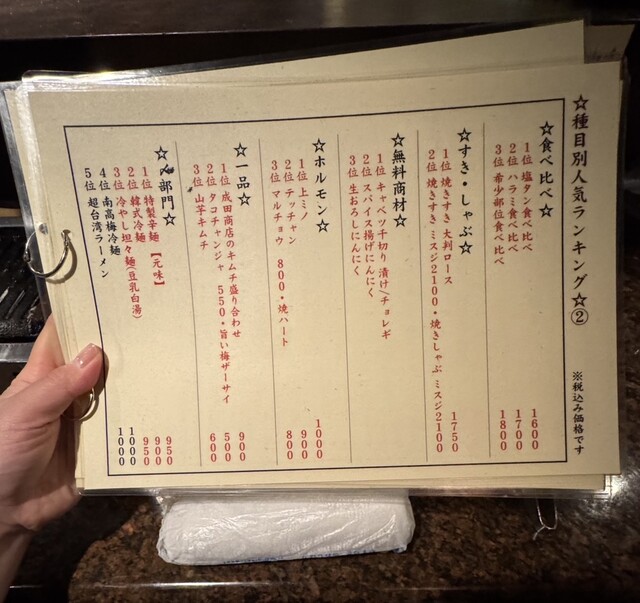 ☆種目別人気ランキング☆②
※税込み価格です
☆食べ比べ☆
1位 塩タン食べ比べ 1600
2位 ハラミ食べ比べ 1700
3位 希少部位食べ比べ 1800
☆すき・しゃぶ☆
1位 焼きすき 大判ロース 1750
2位 焼きすき ミスジ2100・焼きしゃぶ ミスジ2100
☆無料商材☆
1位 キャベツ千切り 漬け/チョレギ
2位 スパイス揚げにんにく
3位 生おろしにんにく
☆ホルモン☆
1位 上ミノ 1000
2位 テッチャン 900
3位 マルチョウ 800・焼ハート 800
☆一品☆
1位 成田商店のキムチ盛り合わせ 900
2位 タコチャンジャ 550・旨い梅ザーサイ 500
3位 山芋キムチ 600
☆〆部門☆
1位 特製辛麺 【元味】 950
2位 韓式冷麺 900
3位 冷やし坦々麺(豆乳白湯) 950
4位 南高梅冷麺 1000
5位 超台湾ラーメン 1000